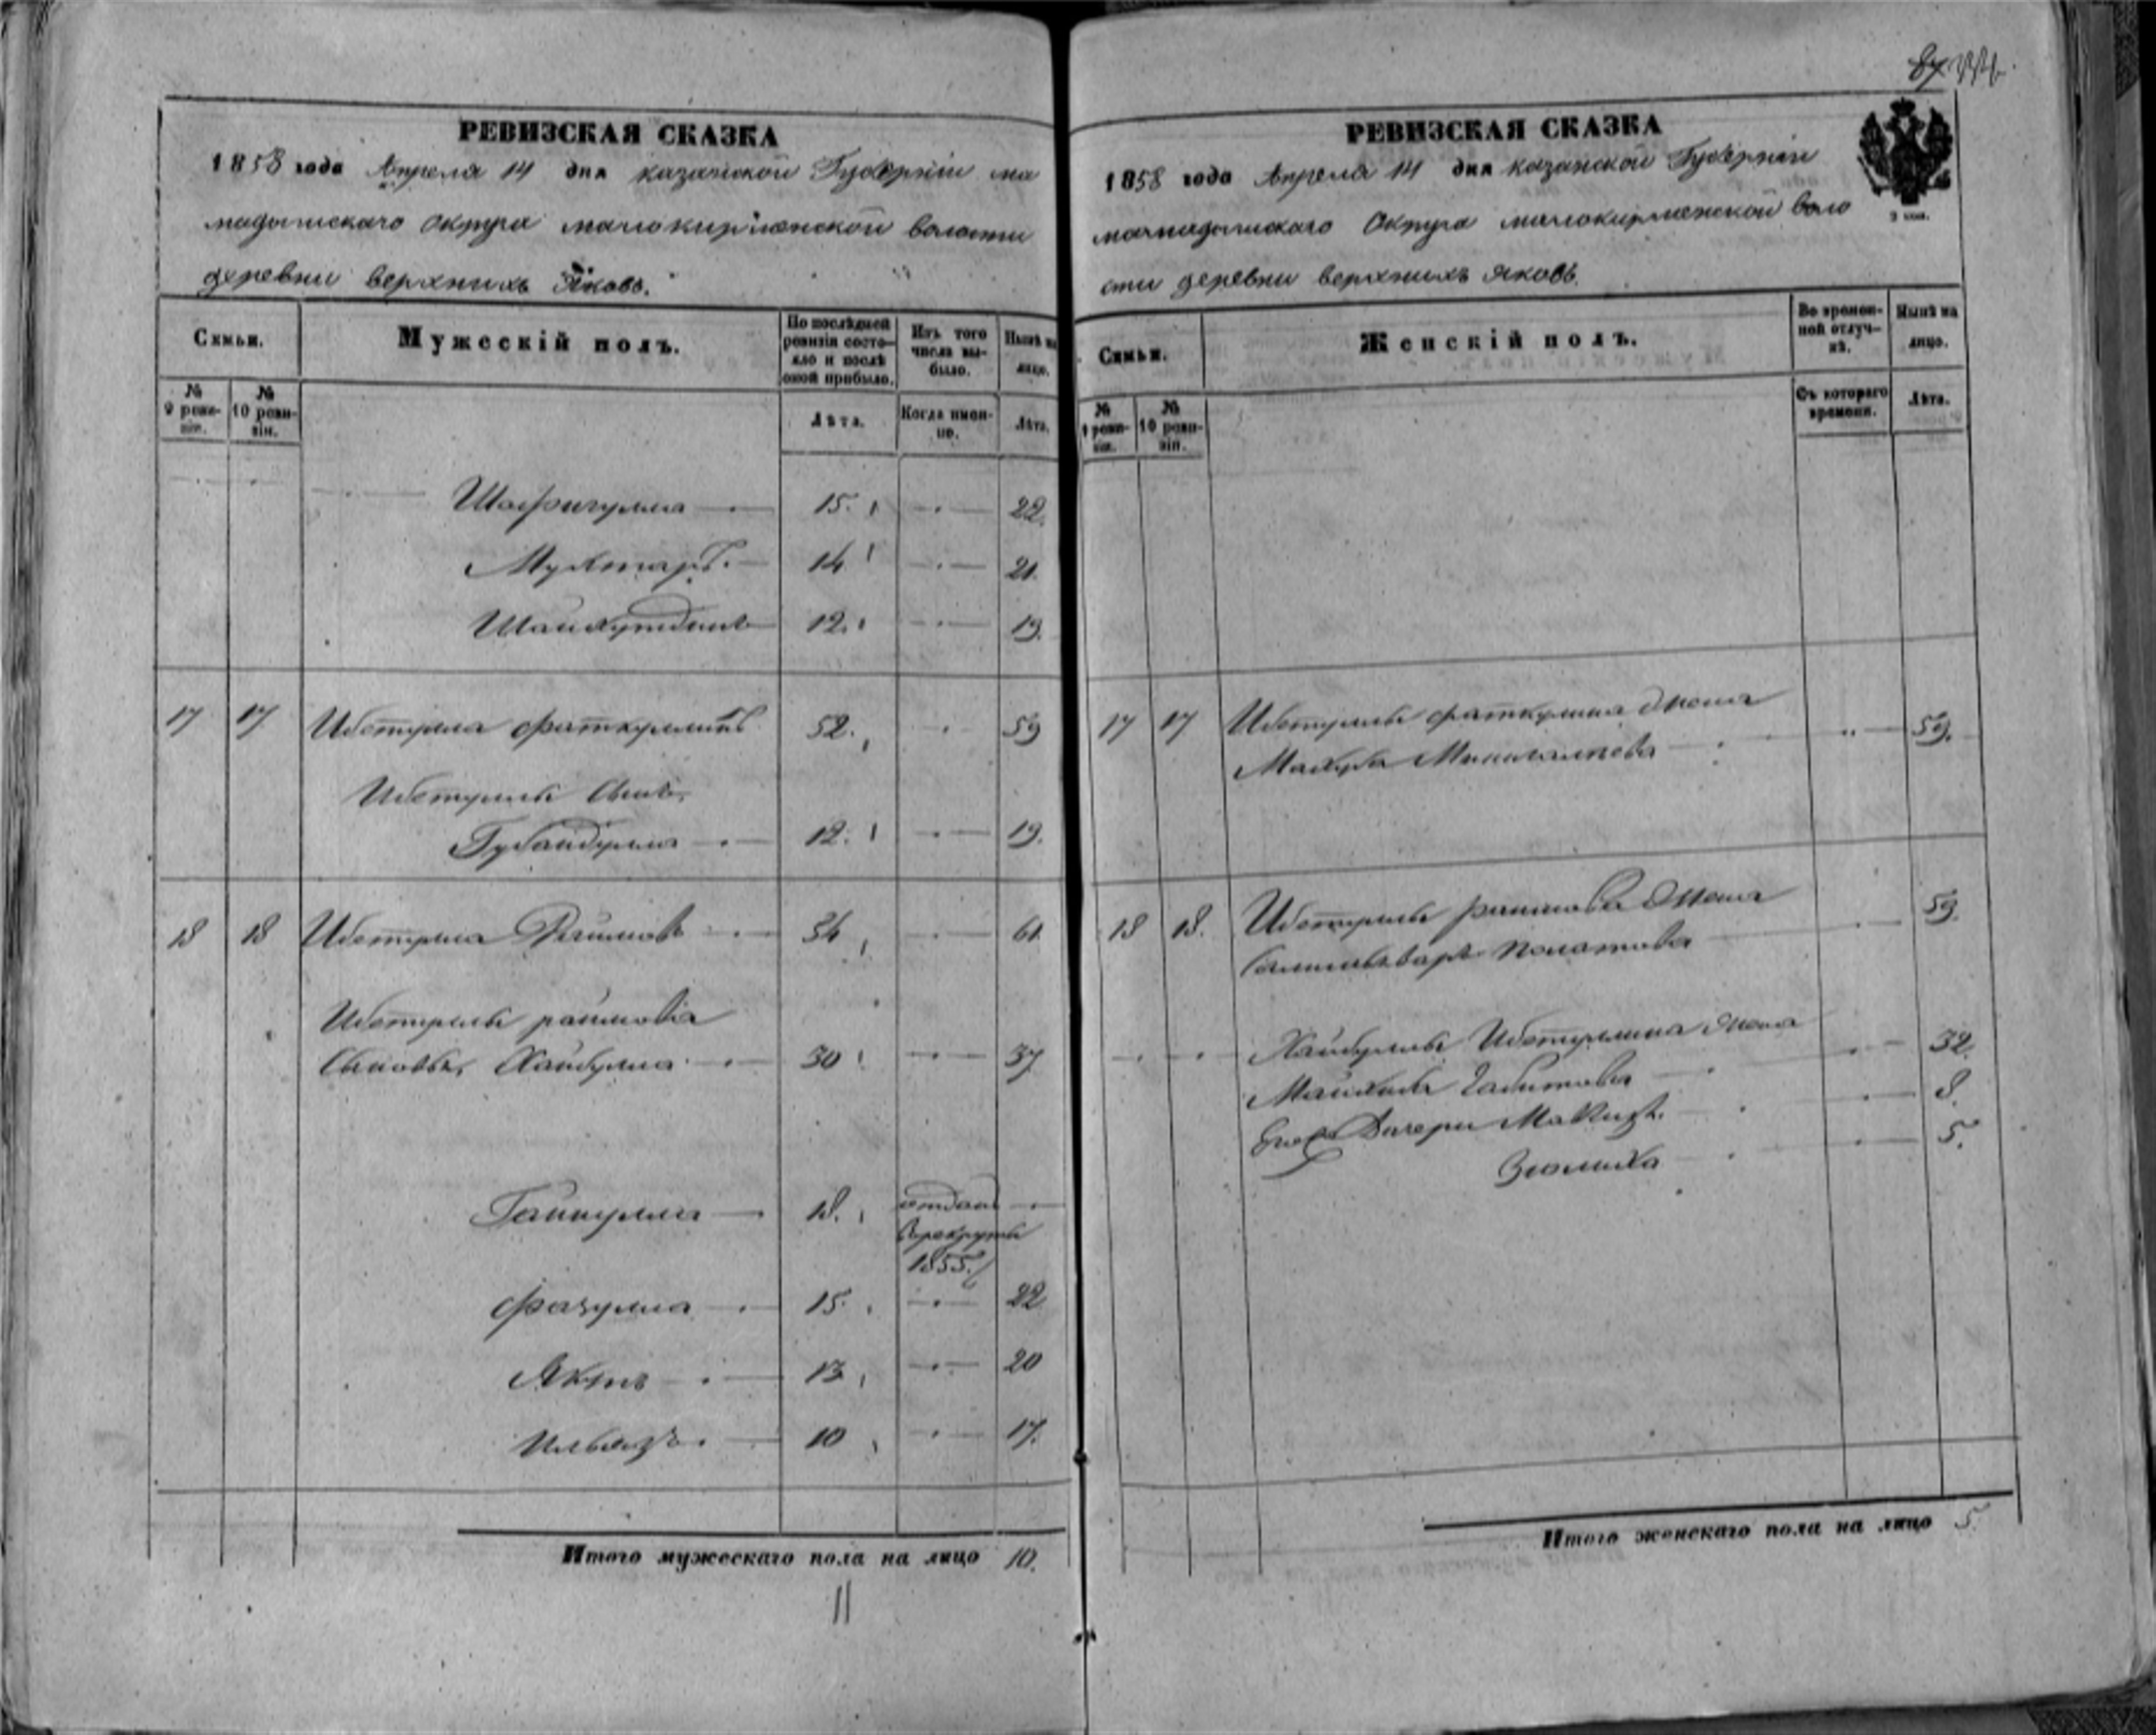 РЕВИЗСКАЯ СКАЗКА
1858 года Апреля 14 дня казанской Губерніи ма
мадышскаго Округа малокирменской волости
деревни верхнихъ Яковъ.
Семьи.
Мужескій полъ.
По послѣдней ревизіи состояло и послѣ оной прибыло.
Изъ того числа выбыло.
Нынѣ на лицо.
№ 9 ревизіи.
№ 10 ревизіи.
Лѣта.
Когда именно.
Лѣта.
Шафигулла 15. 22.
Мухтаръ. 14 21.
Шайхутдинъ 12. 19.
17 17 Ибетулла фаткуллинъ 52. 59
Ибетуллы сынъ,
Губайдулла 12. 19.
18 18 Ибетулла Рагимовъ 54 61.
Ибетуллы раимова
сыновья, Хайбулла 30 37
Гайнулла 18. отданъ
в рекруты
1855.
фазулла 15. 22
13, 20
Ильязъ. 10 17.
Итого мужескаго пола на лицо 10.
11
87
РЕВИЗСКАЯ СКАЗКА
1858 года Апреля 14 дня казанской Губерніи
мамадышскаго Округа малокирменской воло
сти деревни верхнихъ Яковъ.
Семьи.
Женскій полъ.
Во временной отлучкѣ.
Нынѣ на лицо.
№ 9 ревизіи.
№ 10 ревизіи.
Съ котораго времени.
Лѣта.
17 17 Ибетуллы фаткулина жена
59.
18 18. Ибетуллы раимова жена
59.
Хайбуллы Ибетуллина жена
Габитова 32.
Дочери 8.
Зюлиха 5.
Итого женскаго пола на лицо 5.